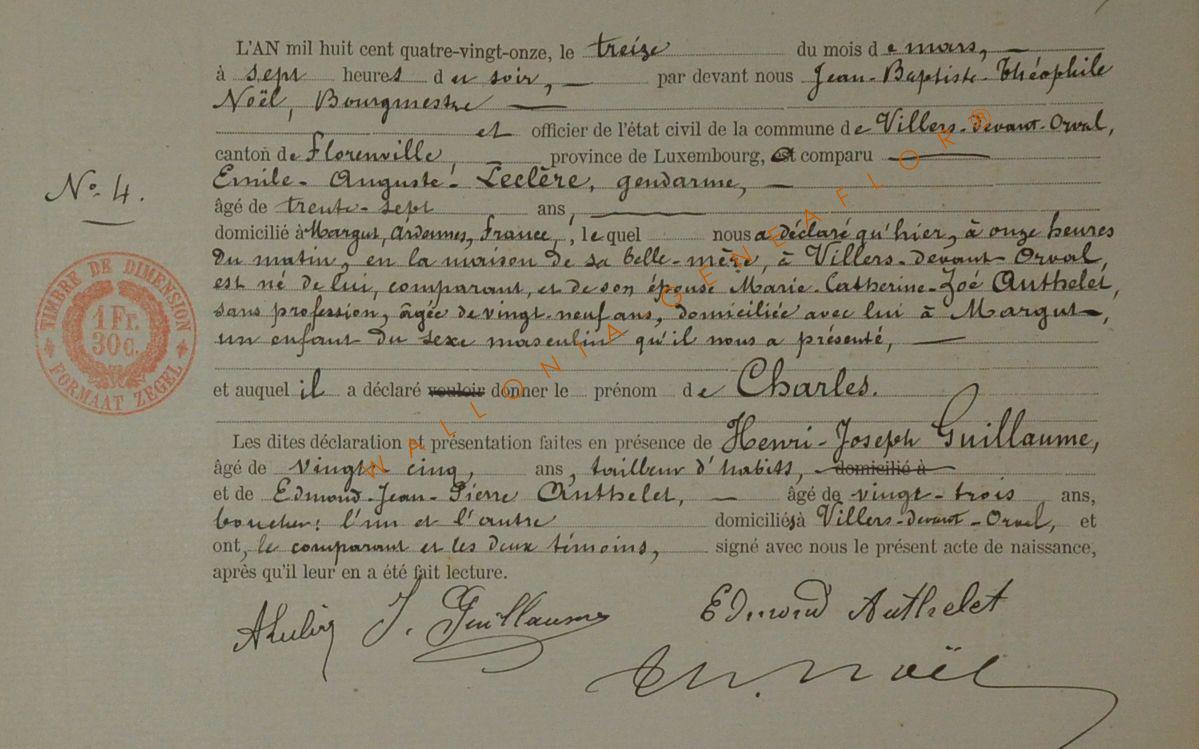 L'AN mil huit cent quatre-vingt-onze, le treize du mois de mars, —
à sept heures du soir, — par devant nous Jean-Baptiste-Théophile
Noël, Bourgmestre —
et officier de l'état civil de la commune de Villers-devant-Orval,
canton de Florenville, province de Luxembourg, a comparu —
Emile-Auguste Leclère, gendarme, —
N° 4.
âgé de trente-sept ans, —
domicilié à Margut, Ardennes, France, lequel nous a déclaré qu'hier, à onze heures
du matin, en la maison de sa belle-mère, à Villers-devant-Orval,
est né de lui, comparant, et de son épouse Marie-Catherine-Zoé Authelet,
sans profession, âgée de vingt-neuf ans, domiciliée avec lui à Margut,
un enfant du sexe masculin qu'il nous a présenté, —
TIMBRE DE DIMENSION
1 Fr.
30 c.
FORMAAT ZEGEL
et auquel il a déclaré vouloir donner le prénom de Charles.
Les dites déclaration et présentation faites en présence de Henri-Joseph Guillaume,
âgé de vingt-cinq, ans, tailleur d'habits, — domicilié à
et de Edmond-Jean-Pierre Authelet, — âgé de vingt-trois ans,
boucher; l'un et l'autre domiciliés à Villers-devant-Orval, et
ont, le comparant et les deux témoins, signé avec nous le présent acte de naissance,
après qu'il leur en a été fait lecture.
J. Guillaume Edmond Authelet
Th. Noël
WALLONIA GENEAFLOR®